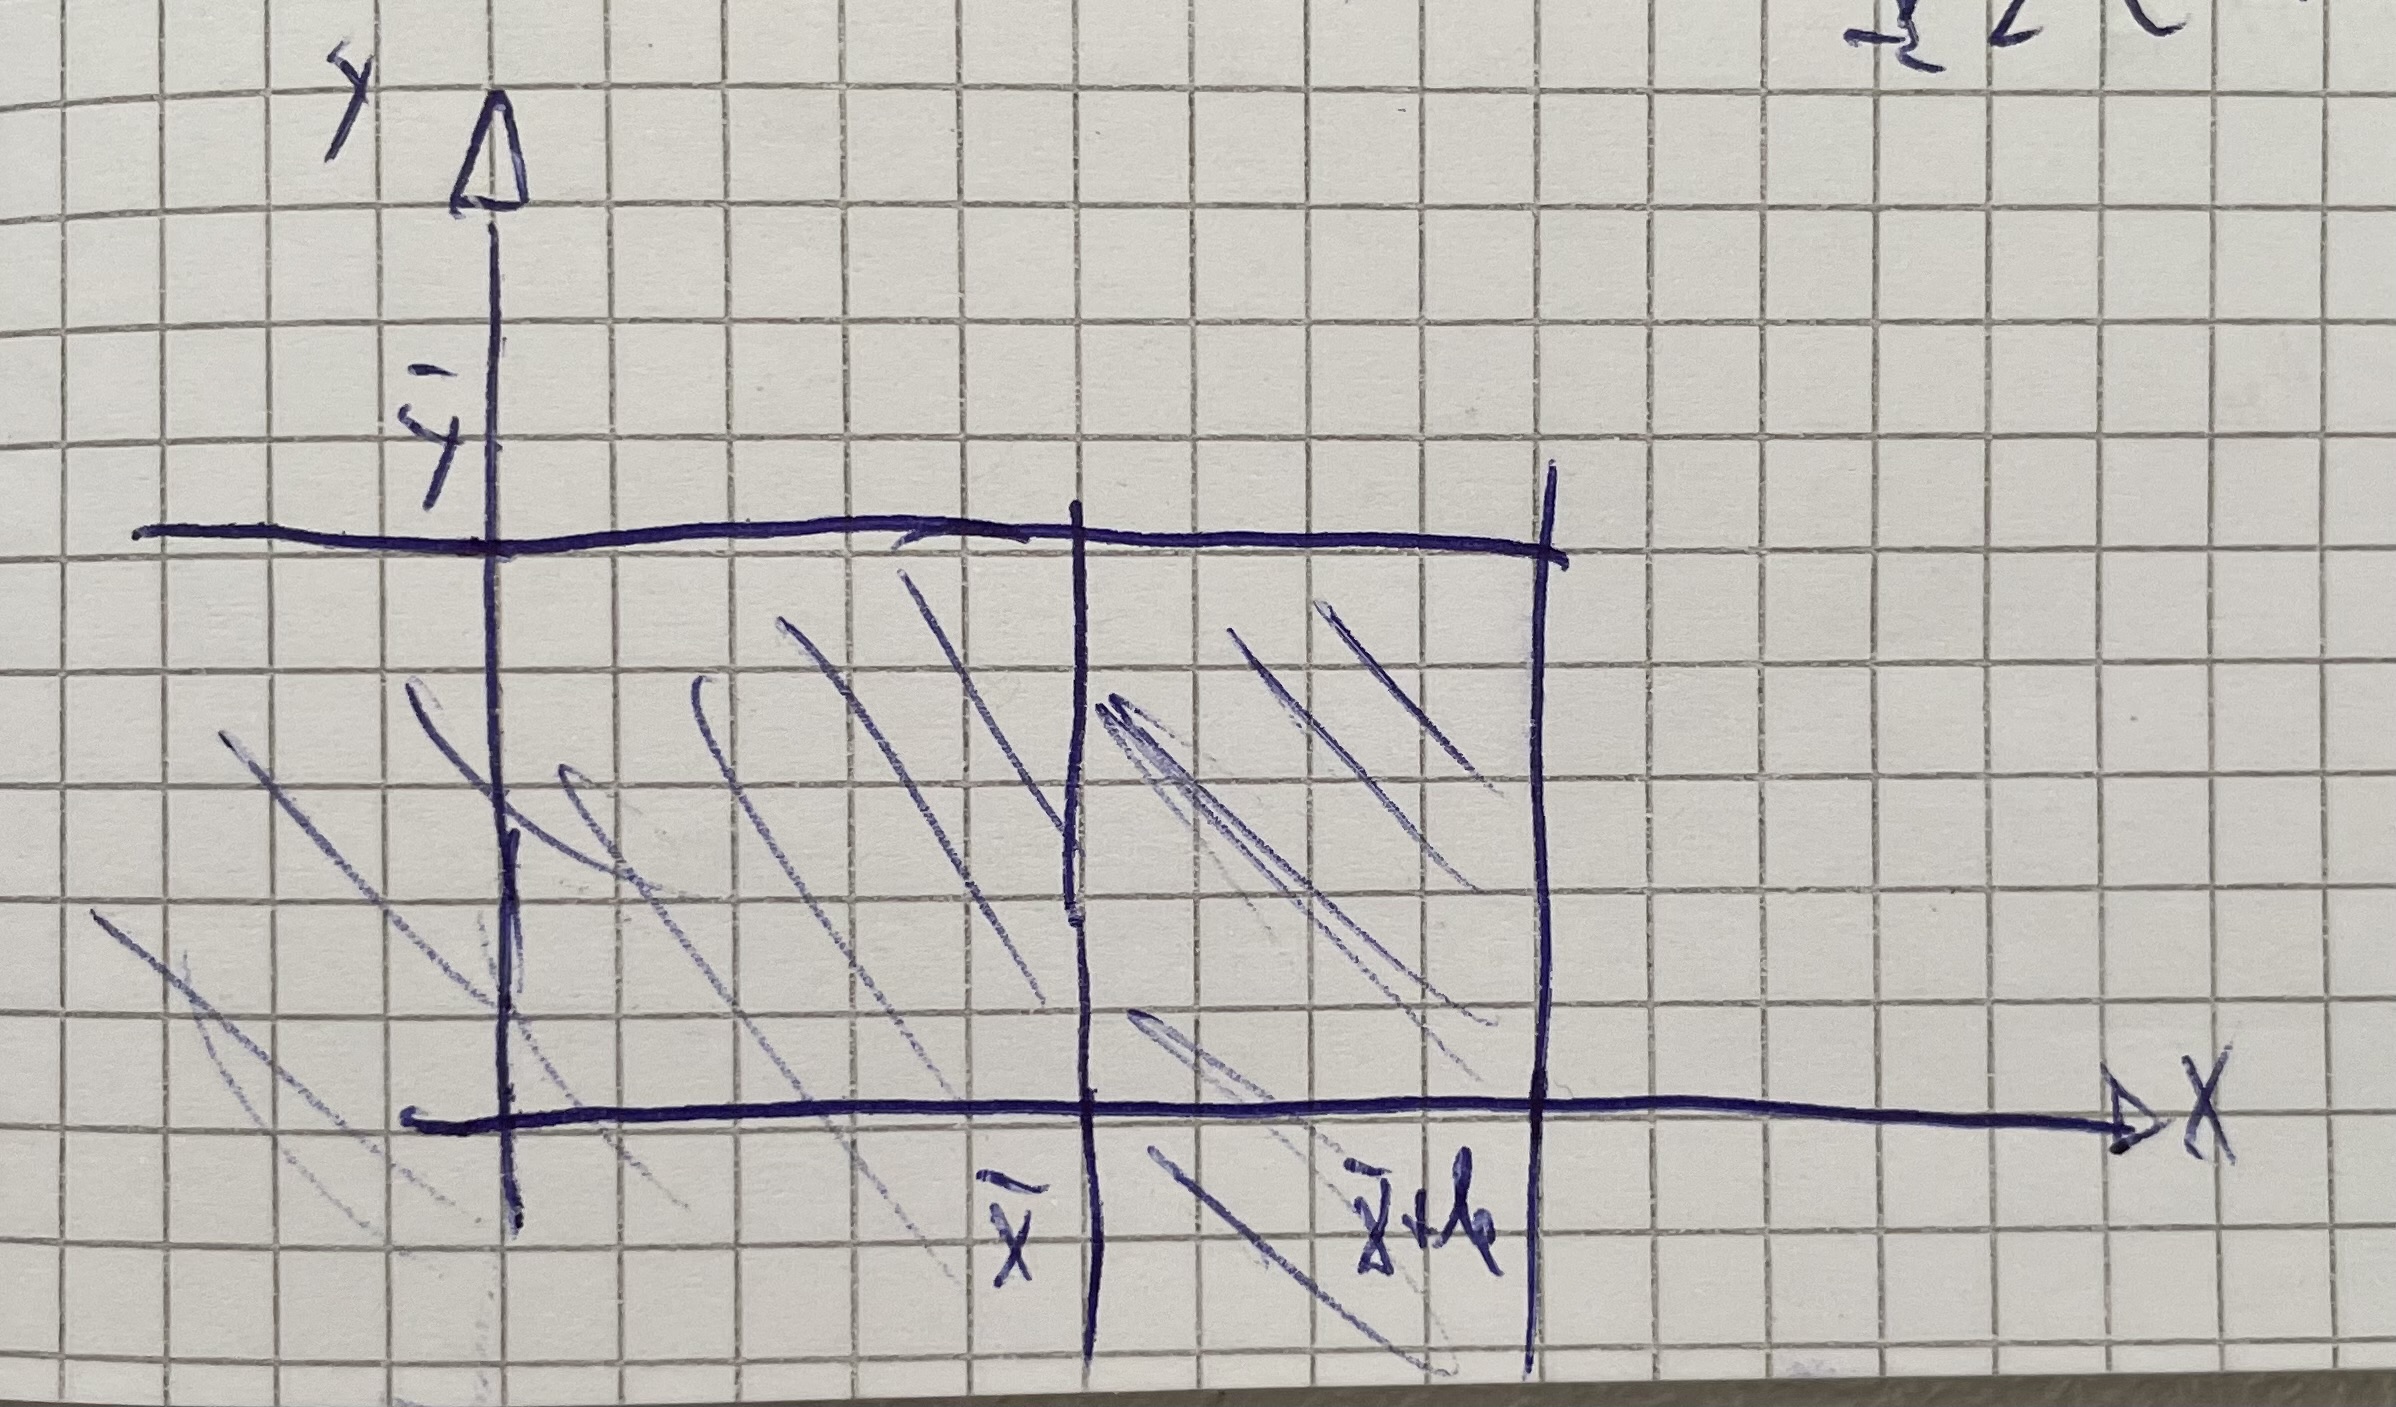 y
ȳ
X
x̄
x̄+h